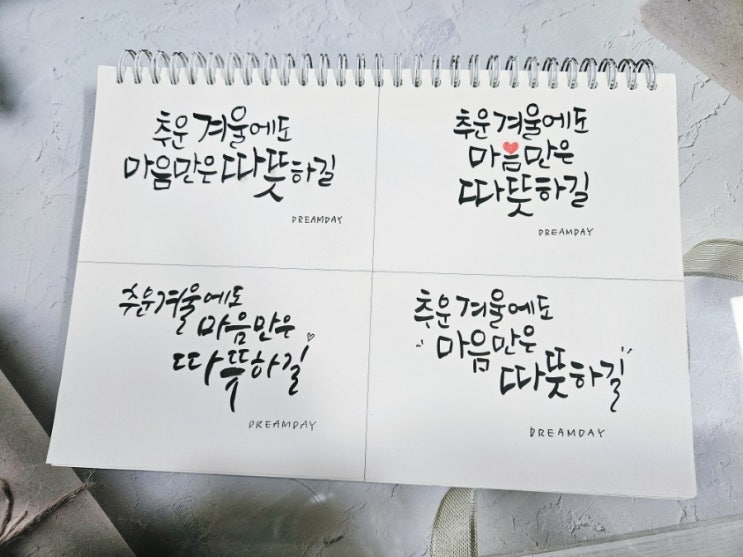 추운 겨울에도
마음만은 따뜻하길
DREAMDAY
추운 겨울에도
마음만은
따뜻하길
DREAMDAY
추운 겨울에도
마음만은
따뜻하길
DREAMDAY
추운 겨울에도
마음만은
따뜻하길
DREAMDAY